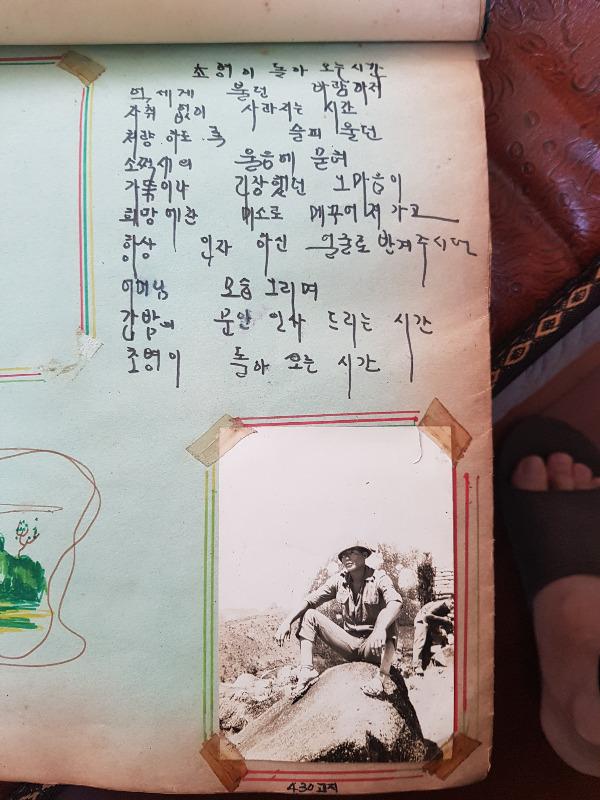 초병이 돌아 오는 시간
억세게 불던 바람마저
자취 없이 사라지는 시간
처량 하도록 슬피 울던
소쩍새의 울음에 묻혀
가뜩이나 긴장했던 그 마음이
희망에찬 미소로 메꾸어 져 가고
항상 인자 하신 얼굴로 반겨주시던
어머님 모습 그리며
간밤의 문안 인사 드리는 시간
초병이 돌아 오는 시간
430고지